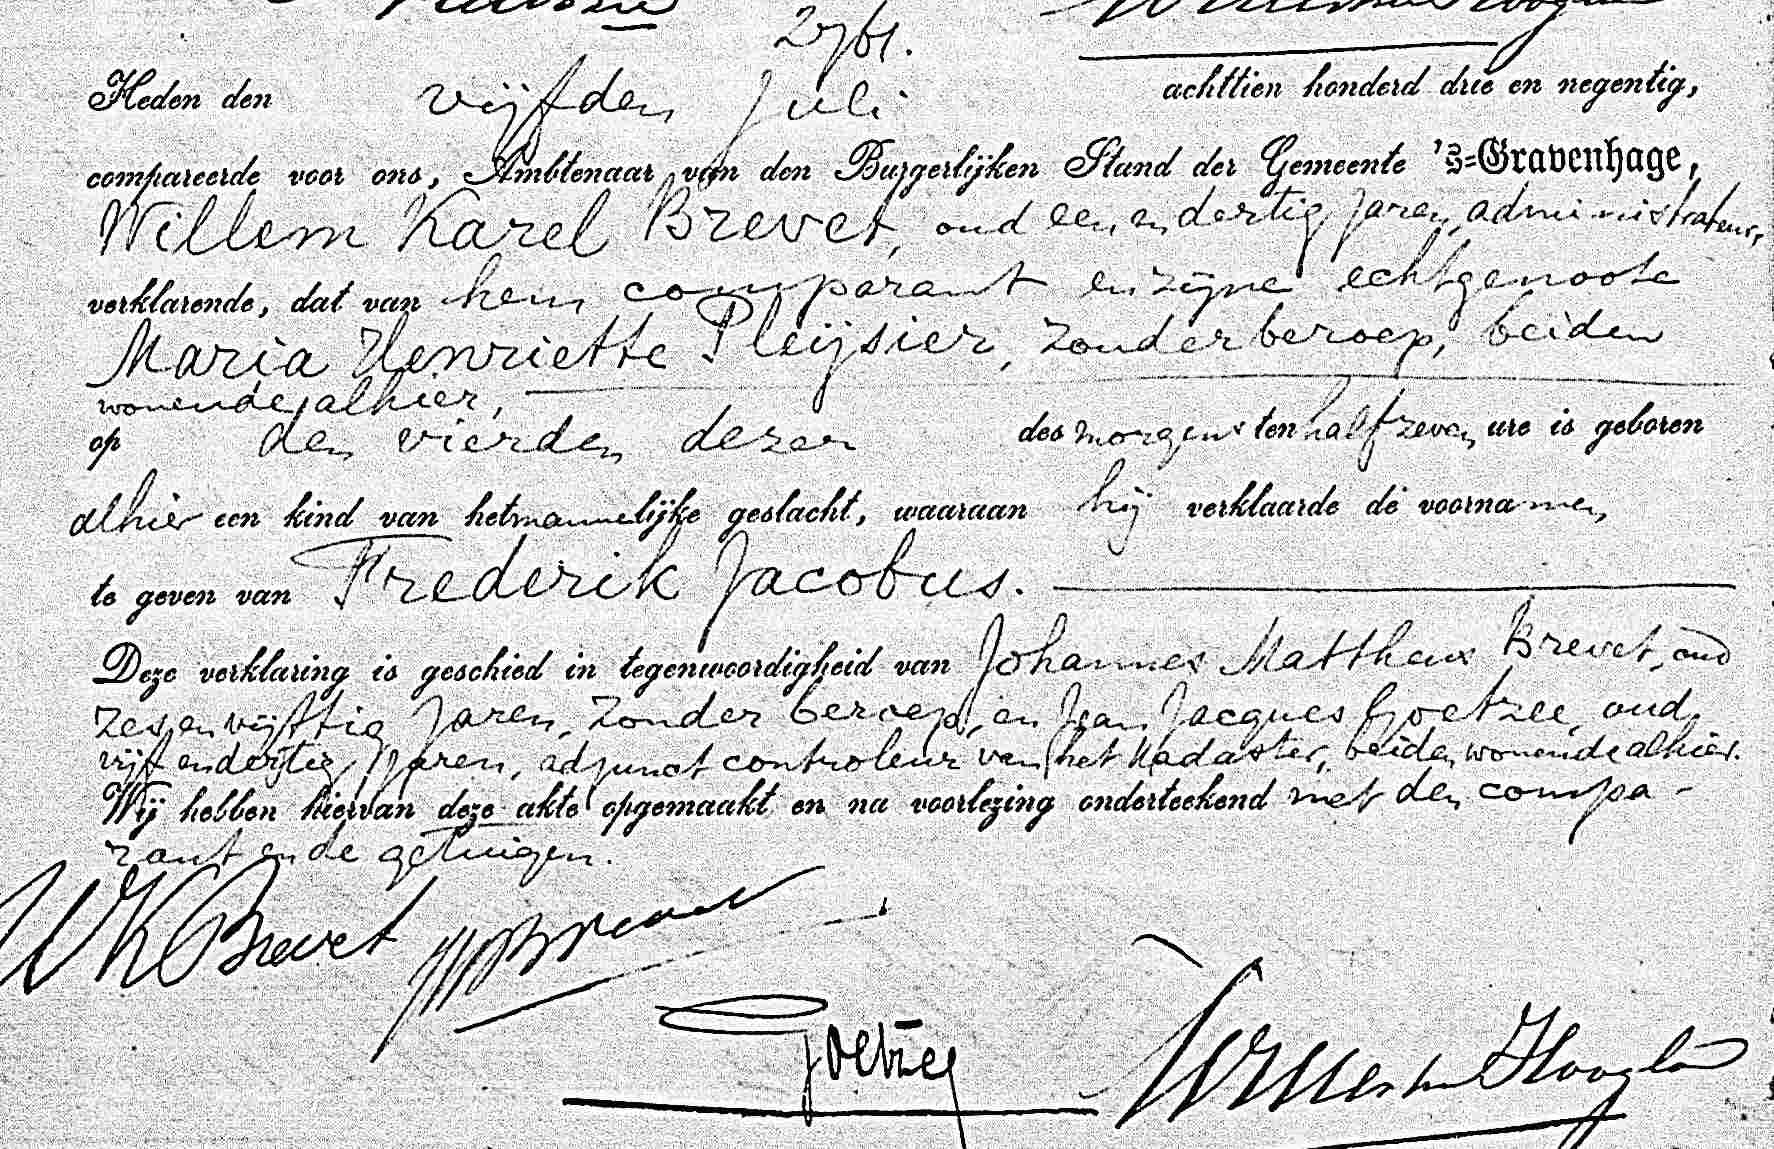 2761.
Heden den vijfden Juli achttien honderd drie en negentig,
compareerde voor ons, Ambtenaar van den Burgerlijken Stand der Gemeente 's=Gravenhage,
Willem Karel Brevet, oud een en dertig jaren, administrateur,
verklarende, dat van hem comparant en zijne echtgenoote
Maria Henriette Pleijsier, zonder beroep, beiden
wonende alhier,
op den vierden dezer des morgens ten half zeven ure is geboren
alhier een kind van het mannelijke geslacht, waaraan hij verklaarde de voornamen,
te geven van Frederik Jacobus.
Deze verklaring is geschied in tegenwoordigheid van Johannes Mattheus Brevet, oud
zes en vijftig jaren, zonder beroep, en Jean Jacques Goetzee, oud
vijf en dertig jaren, adjunct controleur van het Kadaster, beiden wonende alhier.
Wij hebben hiervan deze akte opgemaakt en na voorlezing onderteekend met den compa-
rant en de getuigen.
WK Brevet
Brevet
Goetzee